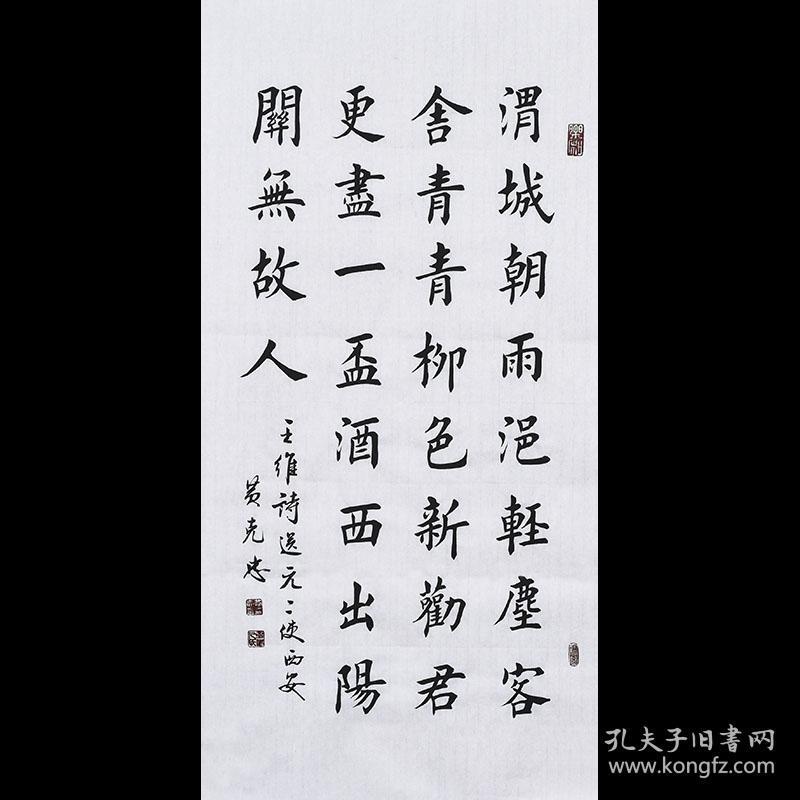 渭城朝雨浥輕塵客
舍青青柳色新勸君
更盡一盃酒西出陽
關無故人
王維詩送元二使西安
黄克忠
孔夫子旧书网
www.kongfz.com